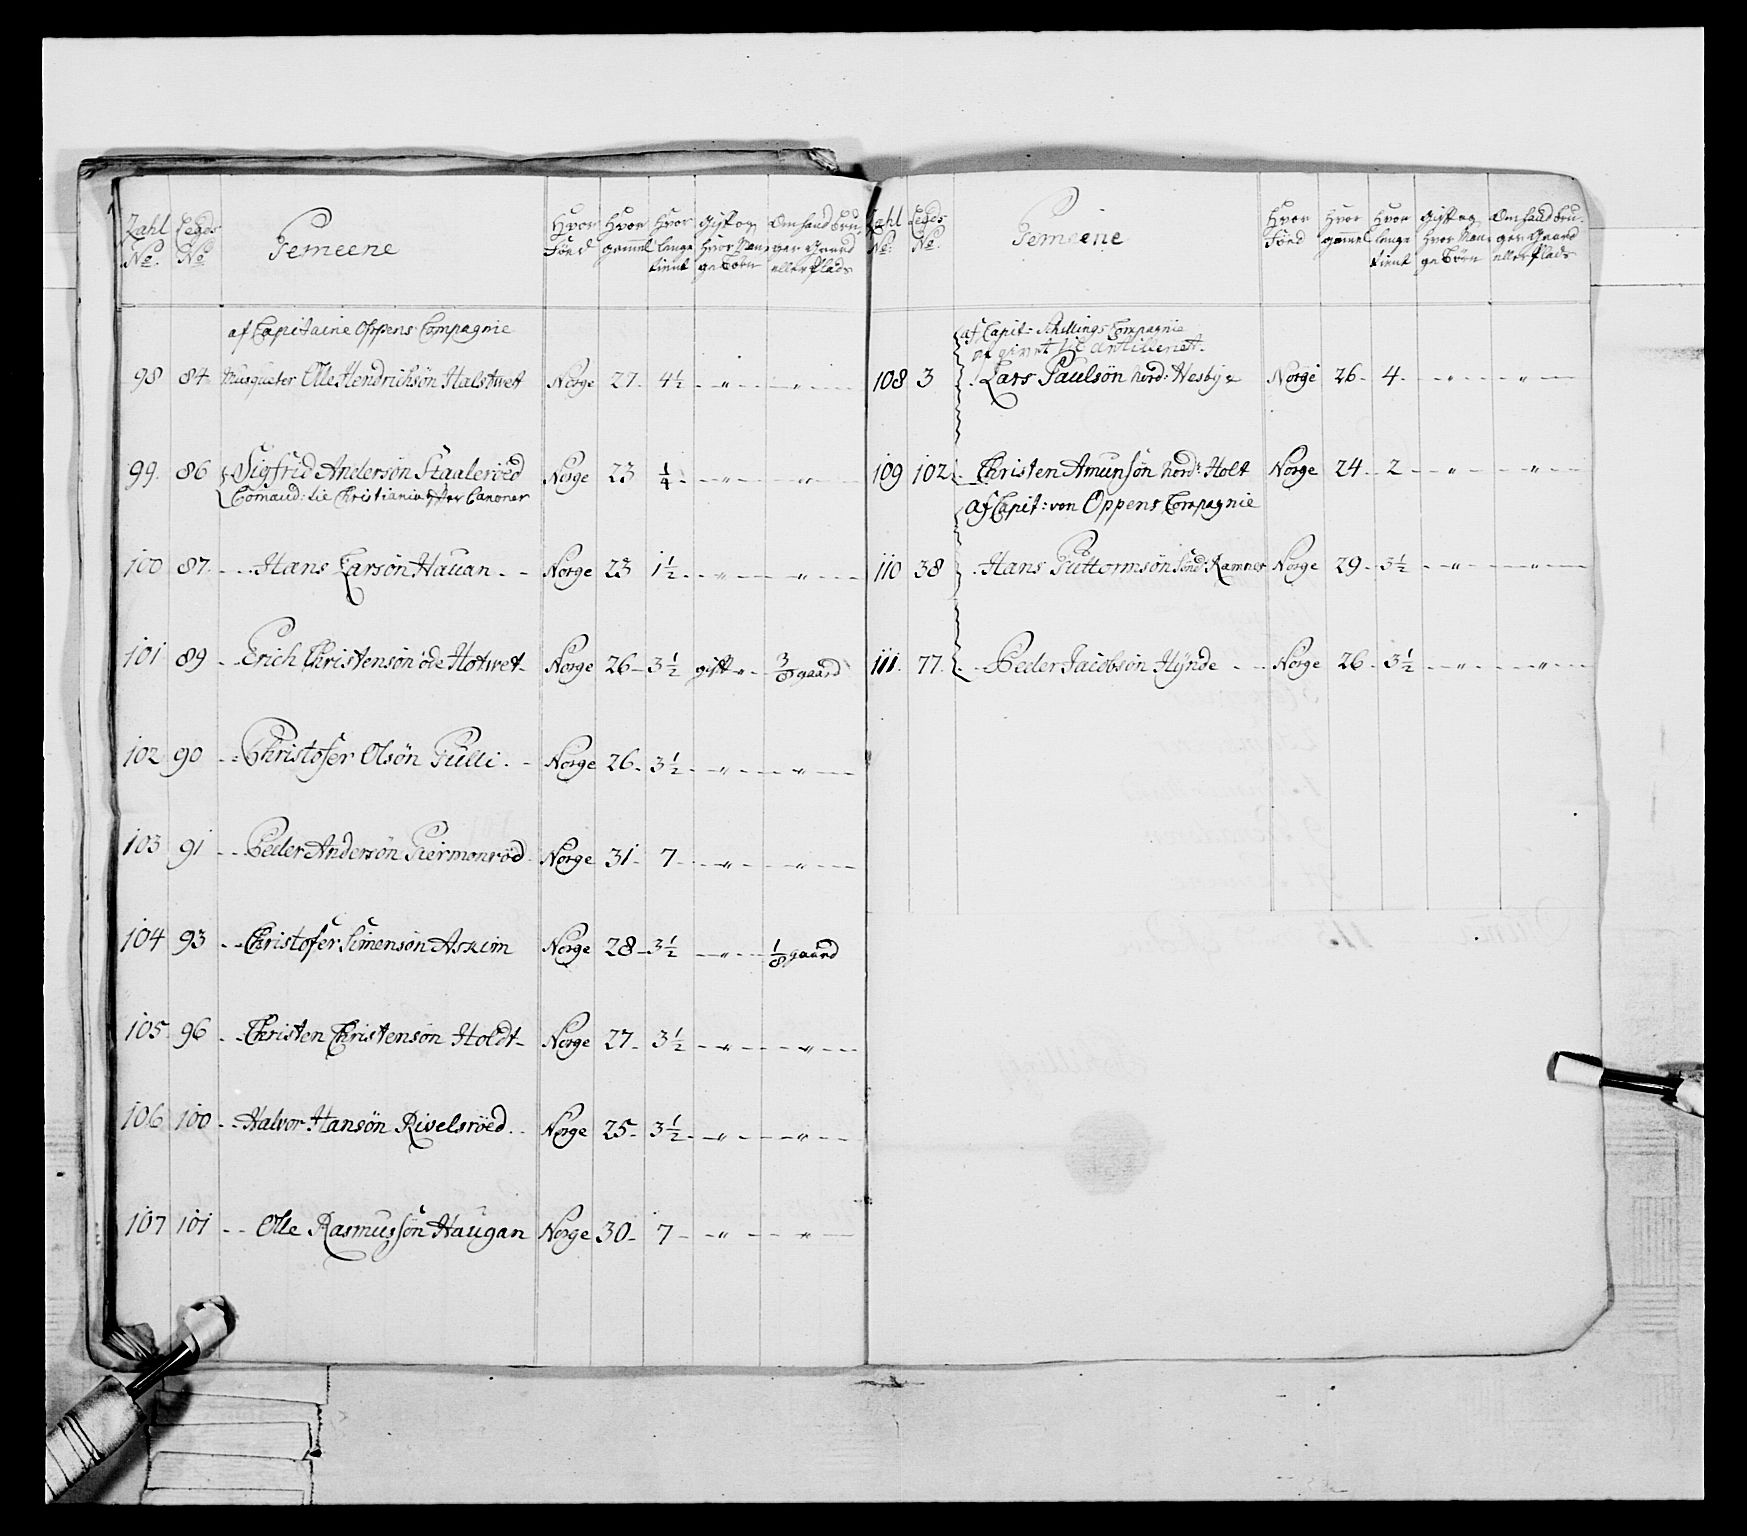 Zahl Legds Gemeene Hvor Hvor Hvor Gift og Om hand bru-
No. No. Föed gammel lenge hvor Man- ger Gaard
tient ge Börn eller Plads
af Capitaine Oppens Compagnie
98 84 Musqueter Olle Hendrichsön Halstwet Norge 27 4½ - " - - " -
99. 86 Sigfrid Andersön Staaleröed Norge 23 ¼ - " - - " -
Comand: til Christiania Canoner
100 87. - - Hans Larsön Hauan - - Norge 23 1½ - " - - " -
101 89 - - Erich Christensön öde Hotwet - Norge 26 - 3½ gift " - 3/8 gaard
102 90 - - Christofer Olsön Gulli - - Norge 26 - 3½ - " - - " -
103 91 - - Peder Andersön Giermonröd Norge 31 - 7 - " - - " -
104 93 - - Christofer Simensön Askim Norge 28 - 3½ - " - 1/8 gaard
105 96 - - Christen Christensön Holdt - Norge 27 - 3½ - " - - " -
106 100 - - Halvor Hansön Rivelsröed - - Norge 25 - 3½ - " - - " -
107 101 - - Olle Rasmussön Haugan Norge 30 - 7 - " - - " -
Zahl Legds Gemeene Hvor Hvor Hvor Gift og Om hand bru-
No. No. Föed gammel lenge hvor Man- ger Gaard
tient ge Börn eller Plads
af Capit: Schillings Compagnie
afgivet til Artilleriet.
108 3 Lars Paulsön nord: Wesby Norge 26 - 4 - - " - - " -
109 102 Christen Amunsön nord: Holt Norge 24 - 2 - - " - - " -
af Capit: von Oppens Compagnie
110 38 Hans Guttormsön Sönd: Ramnes Norge 29 - 3½ - " - - " -
111. 77 - - Peder Jacobsön Hÿnde - - Norge 26 - 3½ - " - - " -